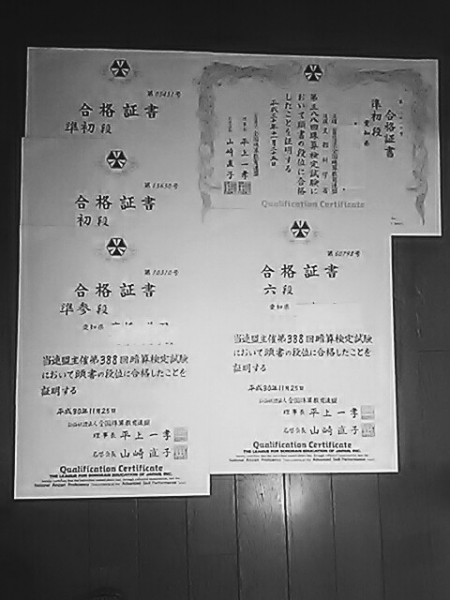 合格証書
準初段
合格証書
準初段
愛知県
第三八八回珠算検定試験に
おいて頭書の段位に合格
したことを証明する
平成三十年十一月二十五日
理事長 平上一孝
山崎直子
Qualification Certificate
合格証書
初段
合格証書
準参段
愛知県
当連盟主催第388回暗算検定試験
において頭書の段位に合格したことを
証明する
平成30年11月25日
公益社団法人全国珠算教育連盟
理事長 平上一孝
名誉会長 山崎直子
Qualification Certificate
THE LEAGUE FOR SOROBAN EDUCATION OF JAPAN, INC.
合格証書
六段
愛知県
当連盟主催第388回暗算検定試験
において頭書の段位に合格したことを
証明する
平成30年11月25日
公益社団法人全国珠算教育連盟
理事長 平上一孝
名誉会長 山崎直子
Qualification Certificate
THE LEAGUE FOR SOROBAN EDUCATION OF JAPAN, INC.